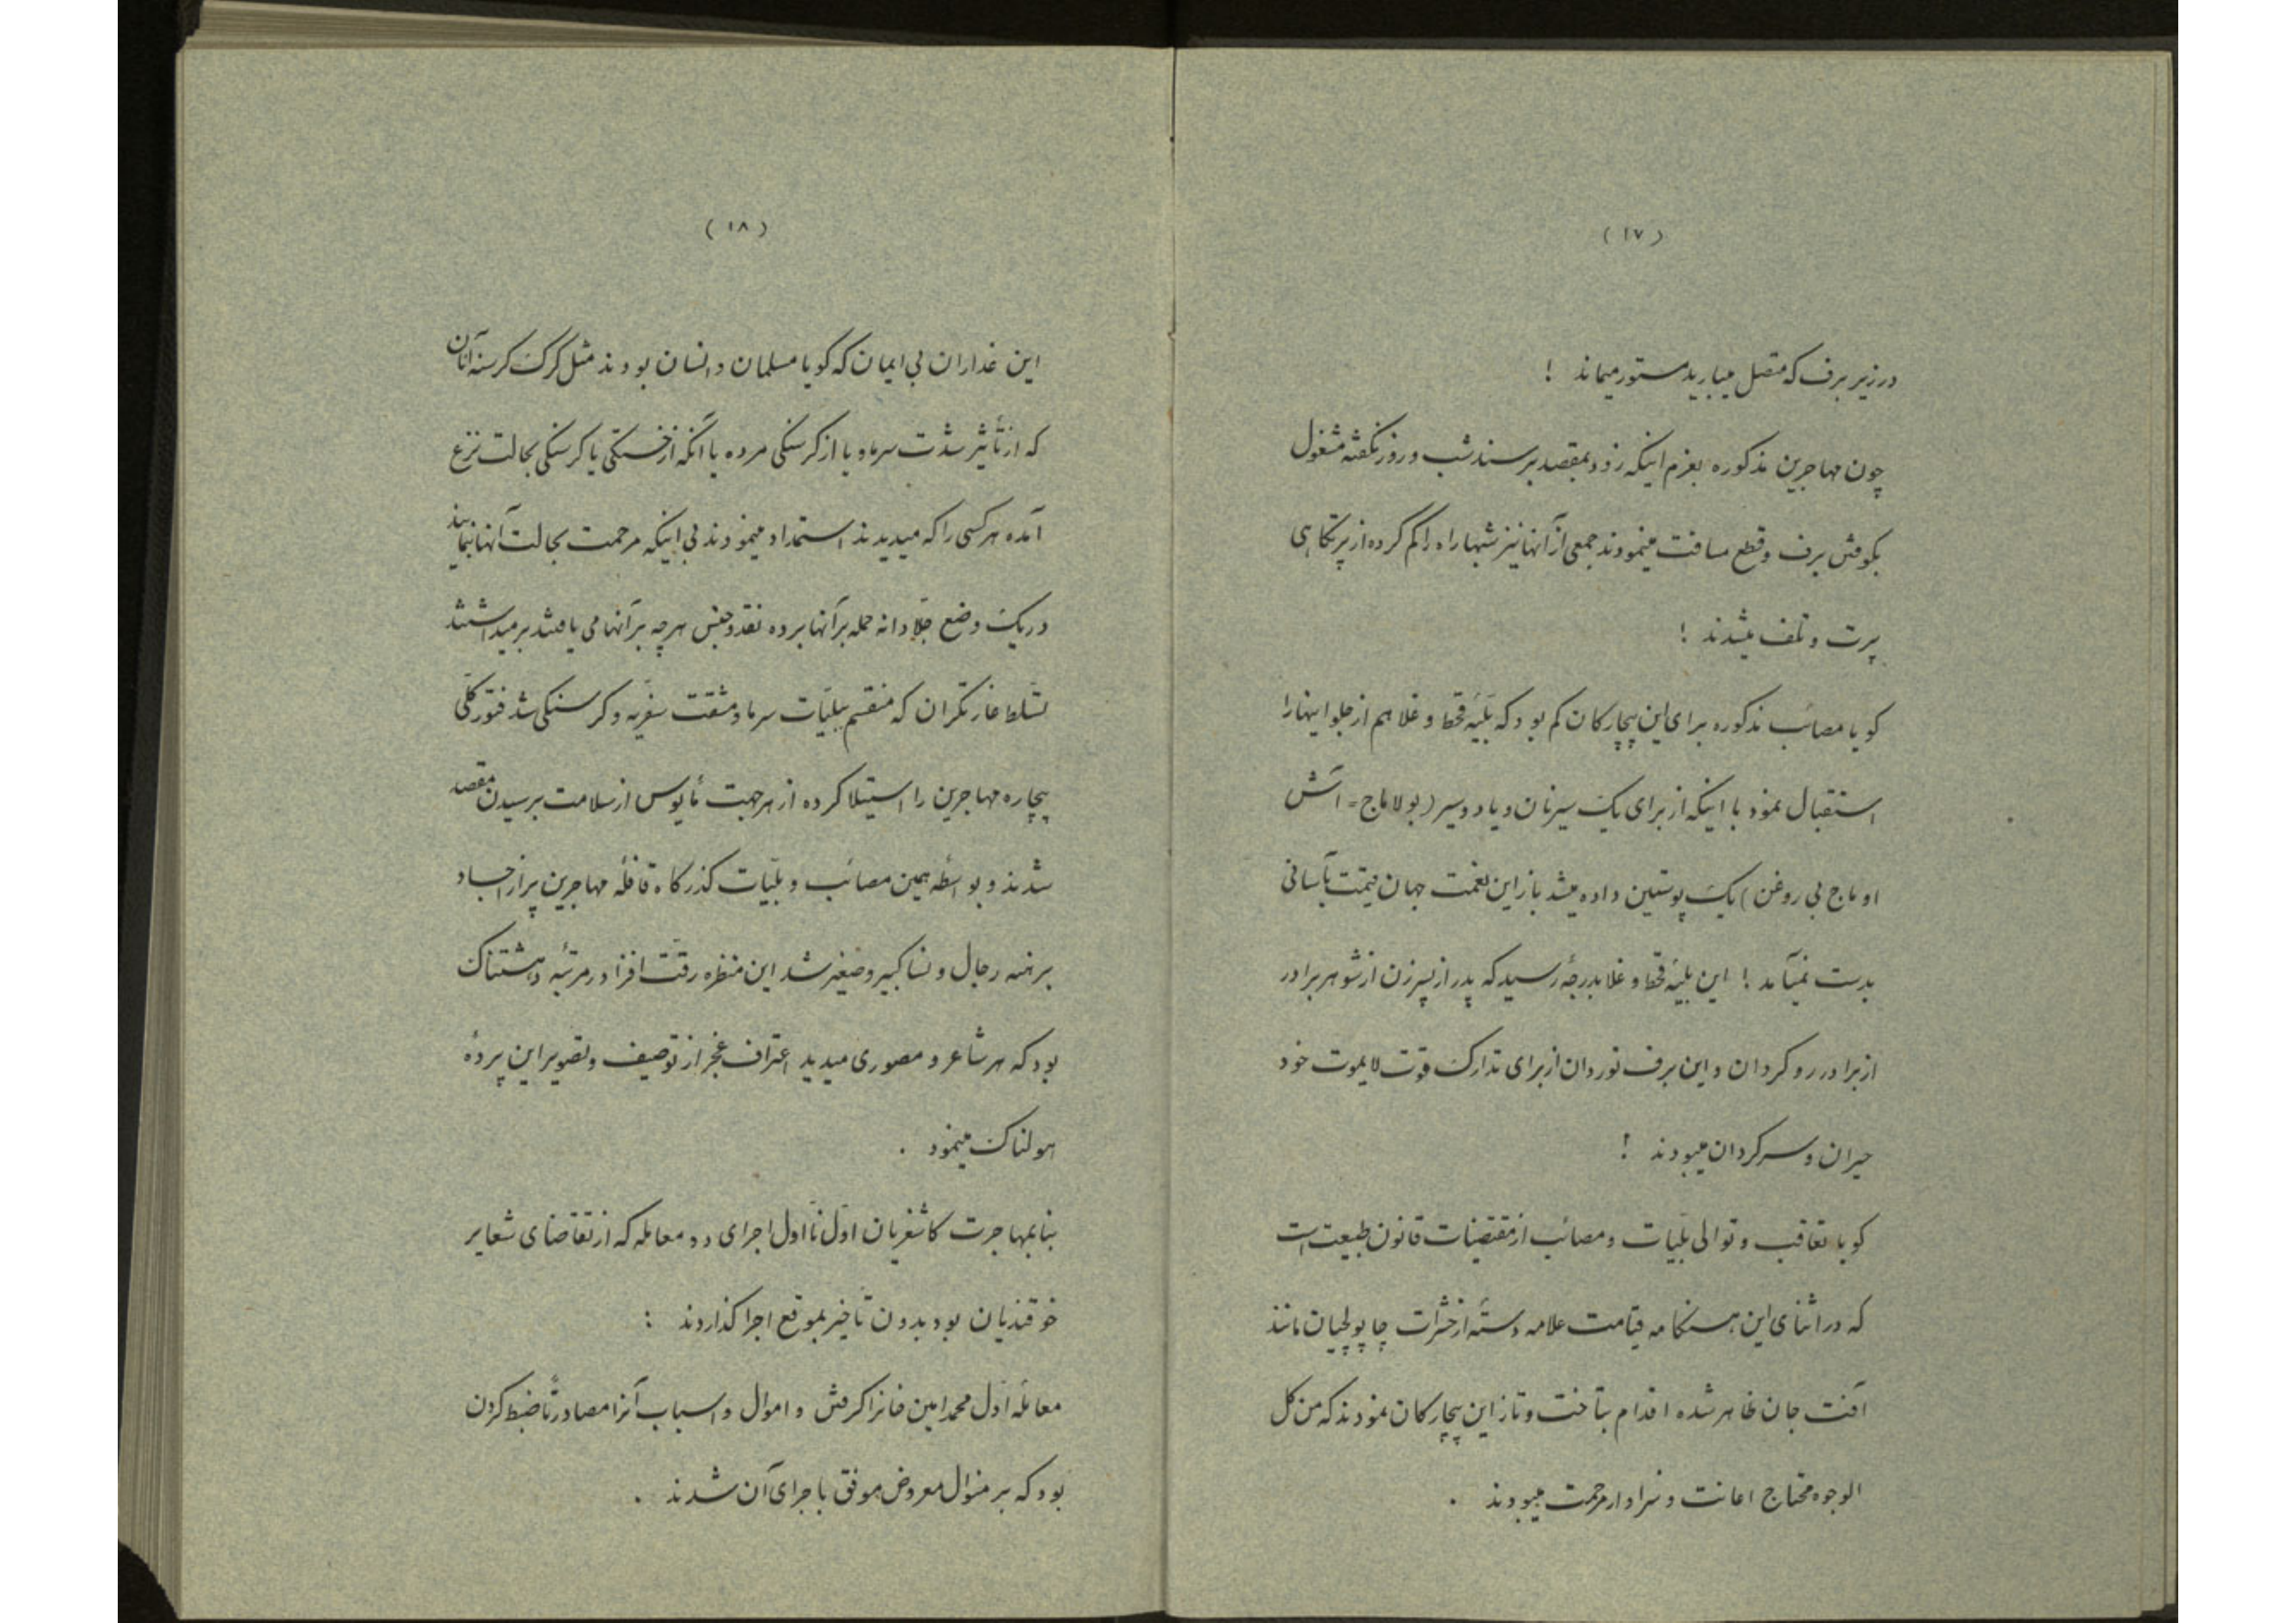 (۱۷)
در زیر برف که متصل میبارید مستور میماند !
چون مهاجرین مذکوره بعزم اینکه زود بمقصد برسند شب و روز نکفته مشغول
بکوفتن برف و قطع مسافت مینمودند جمعی از آنها نیز شبها راه را کم کرده از پرتکاهی
پرت و تلف میشدند !
کویا مصائب مذکوره برای این بیچارکان کم بود که بَلیّهٔ قحط و غلا هم از جلو اینها را
استقبال نمود با اینکه از برای یک سیر نان و یا دو سیر (بولاماج = آش
اوماج بی روغن) یک پوستین داده میشد باز این نعمت جهان قیمت بآسانی
بدست نمیآمد ! این بلیّهٔ قحط و غلا بدرجهٔ رسید که پدر از پسر زن از شوهر برادر
از برادر رو کردان و این برف نوردان از برای تدارک قوت لایموت خود
حیران و سرکردان میبودند !
کویا تعاقب و توالی بلّیات و مصائب از مقتضیات قانون طبیعت است
که در اثنای این هنکامه قیامت علامه دستهٔ از حشرات چاپولچیان مانند
آفت جان ظاهر شده اقدام بتاخت و تاز این بیچارکان نمودند که من کل
الوجوه محتاج اعانت و سزاوار مرحمت میبودند .
(۱۸)
این غداران بی ایمان که کویا مسلمان و انسان بودند مثل کرک کرسنه آنان
که از تأثیر شدّت سرما و یا از کرسنکی مرده یا آنکه از خستکی یا کرسنکی بحالت نزع
آمده هر کسی را که میدیدند استمداد مینمودند بی اینکه مرحمت بحالت آنها نمایند
در یک وضع جلّادانه حمله بر آنها برده نقد و جنس هر چه بر آنها می یافتند بر میداشتند
تسّلط غارتکران که منقسم ببلیّات سرما و مشقت سفریّه و کرسنکی شد فتور کلّی
بیچاره مهاجرین را استیلا کرده از هر جهت مأیوس از سلامت برسیدن مقصد
شدند و بواسطهٔ همین مصائب و بلّیات کذرکاه قافلهٔ مهاجرین پر از اجساد
برهنه رجال و نسا کبیر و صغیر شد این منظره رقّت افزا در مرتبهٔ دهشتناک
بود که هر شاعر و مصوری میدید اعتراف عجز از توصیف و تصویر این پردهٔ
هولناک مینمود .
بنا بمهاجرت کاشغریان اوّل تا اول اجرای دو معامله که از تقاضای شعایر
خوقندیان بود بدون تأخیر بموقع اجرا کذاردند :
معاملهٔ اوّل محمد امین خانرا کرفتن و اموال و اسباب آنرا مصادرتاً ضبط کردن
بود که بر منوال معروض موفق باجرای آن شدند .